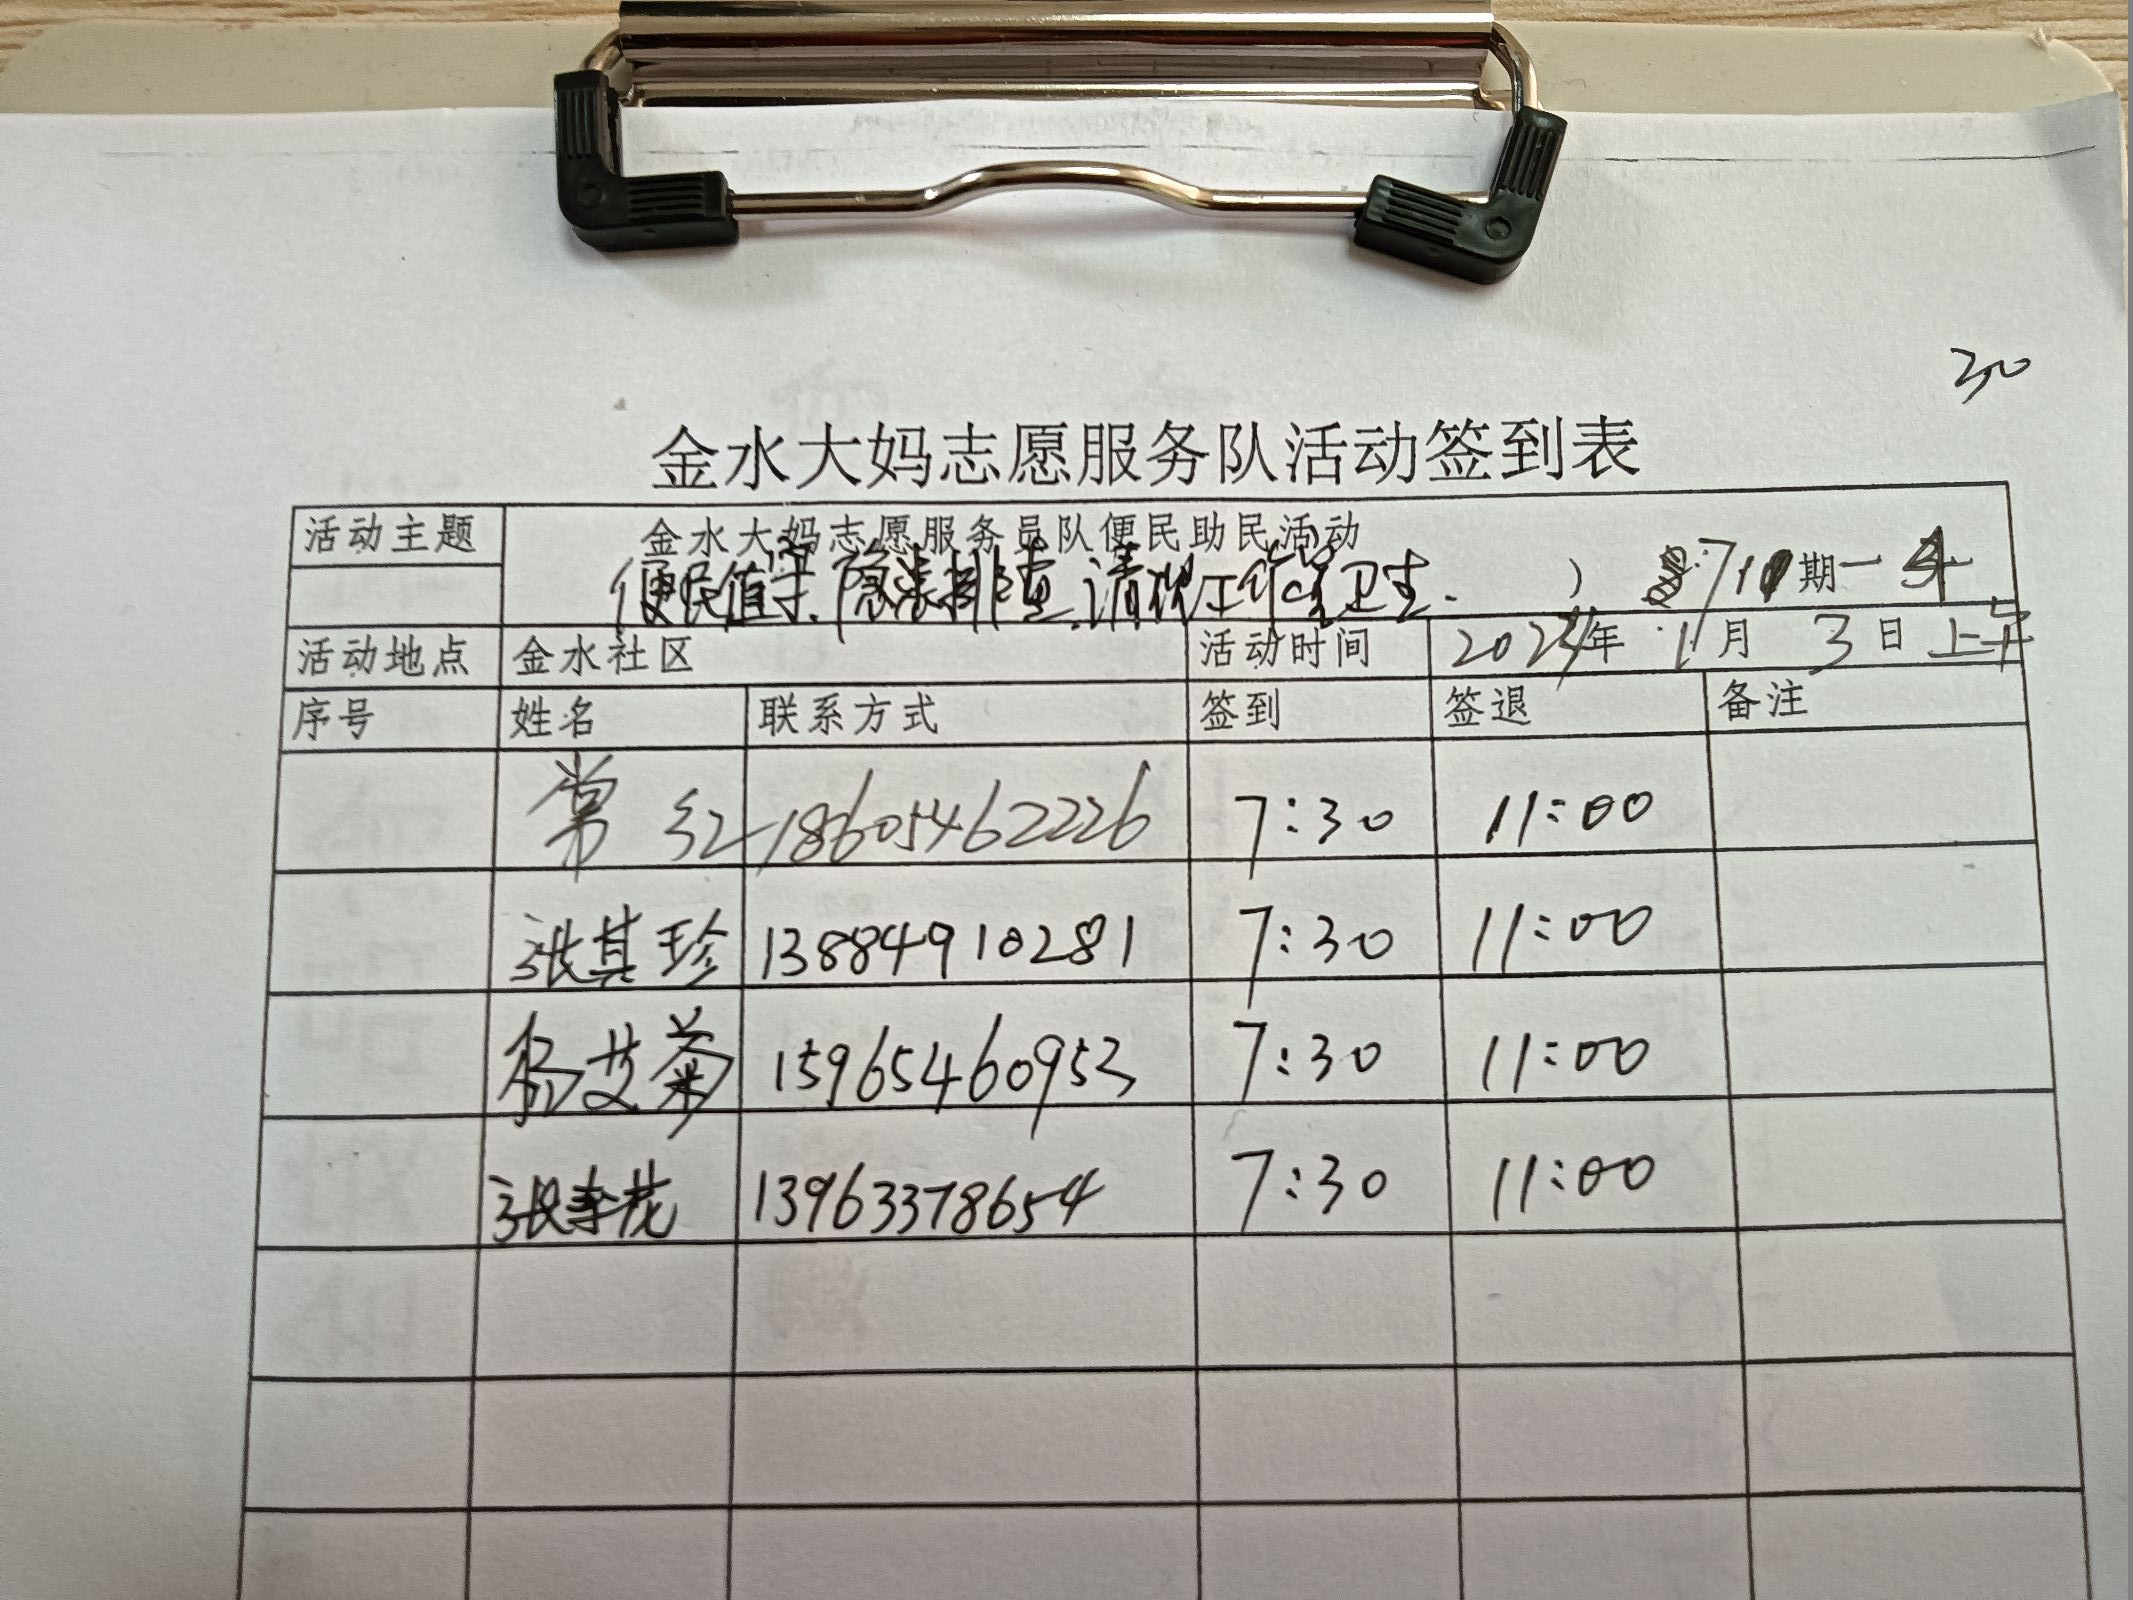 30
金水大妈志愿服务队活动签到表
活动主题 金水大妈志愿服务员队便民助民活动
便民值守.隐患排查.清理工作室卫生. ) 710期一4
活动地点 金水社区 活动时间 2024年 1月 3日上午
序号 姓名 联系方式 签到 签退 备注
常红 18605462226 7:30 11:00
张其珍 13884910281 7:30 11:00
杨艾菊 15965460953 7:30 11:00
张春花 13963378654 7:30 11:00